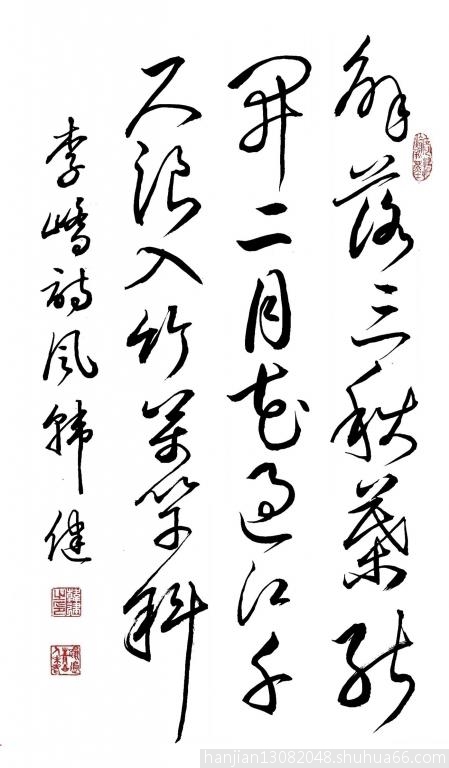 解落三秋葉能
開二月花過江千
尺浪入竹萬竿斜
李嶠詩風韓健
hanjian13082048.shuhua66.com